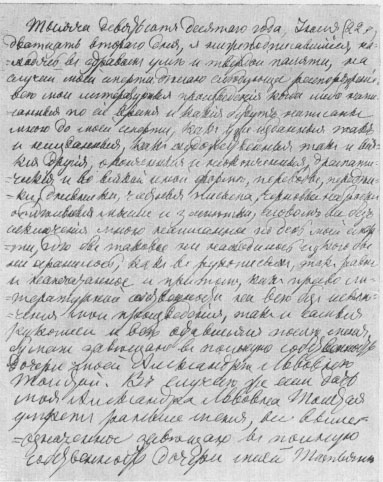 Тысяча девятьсотъ десятаго года, Іюля (22)
двадцать второго дня, я нижеподписавшійся, на-
ходясь въ здравомъ умѣ и твердой памяти, на
случай моей смерти дѣлаю слѣдующее распоряженіе:
всѣ мои литературныя произведенія, когда либо на-
писанныя по сіе время и какія будутъ написаны
мною до моей смерти, какъ уже изданныя, такъ
и неизданныя, какъ художественныя, такъ и вся-
кія другія, оконченныя и неоконченныя, драмати-
ческія и во всякой иной формѣ, переводы, передѣл-
ки, дневники, частныя письма, черновые наброски,
отдѣльныя мысли и замѣтки, словомъ все безъ
исключенія мною написанное по день моей смер-
ти, гдѣ бы таковое ни находилось и у кого бы
ни хранилось, какъ въ рукописяхъ, такъ равно
и напечатанное и притомъ какъ право ли-
тературной собственности на всѣ безъ исклю-
ченія мои произведенія, такъ и самыя
рукописи и всѣ оставшіяся послѣ меня
бумаги завѣщаю въ полную собственность
дочери моей Александрѣ Львовнѣ
Толстой. Въ случаѣ же если дочь
моя Александра Львовна Толстая
умретъ раньше меня, все выше-
означенное завѣщаю въ полную
собственность дочери моей Татьянѣ